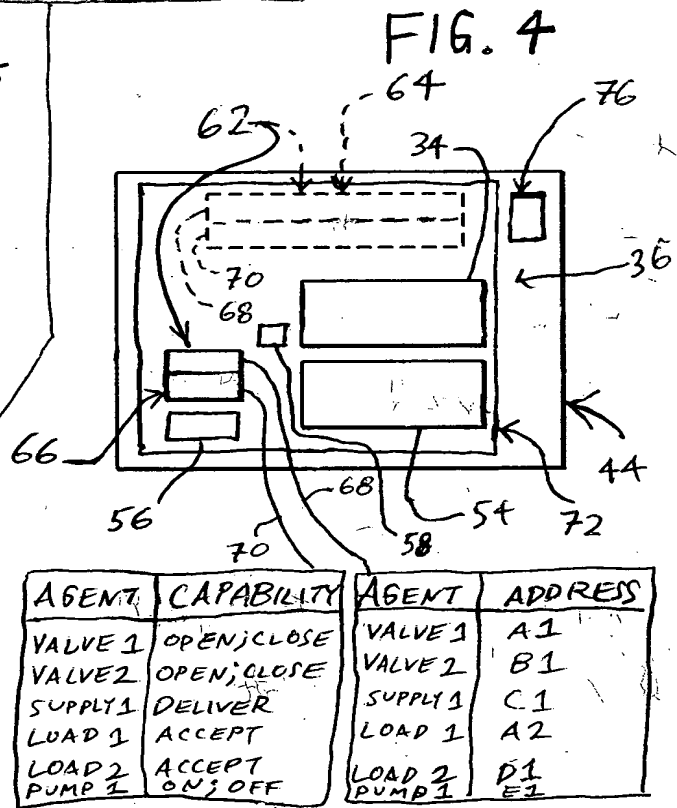 FIG. 4
62
64
76
34
36
70
68
66
56
68
70
58
54
72
44
AGENT CAPABILITY
VALVE 1 OPEN; CLOSE
VALVE 2 OPEN; CLOSE
SUPPLY 1 DELIVER
LOAD 1 ACCEPT
LOAD 2 ACCEPT
PUMP 1 ON; OFF
AGENT ADDRESS
VALVE 1 A1
VALVE 2 B1
SUPPLY 1 C1
LOAD 1 A2
LOAD 2 D1
PUMP 1 E1